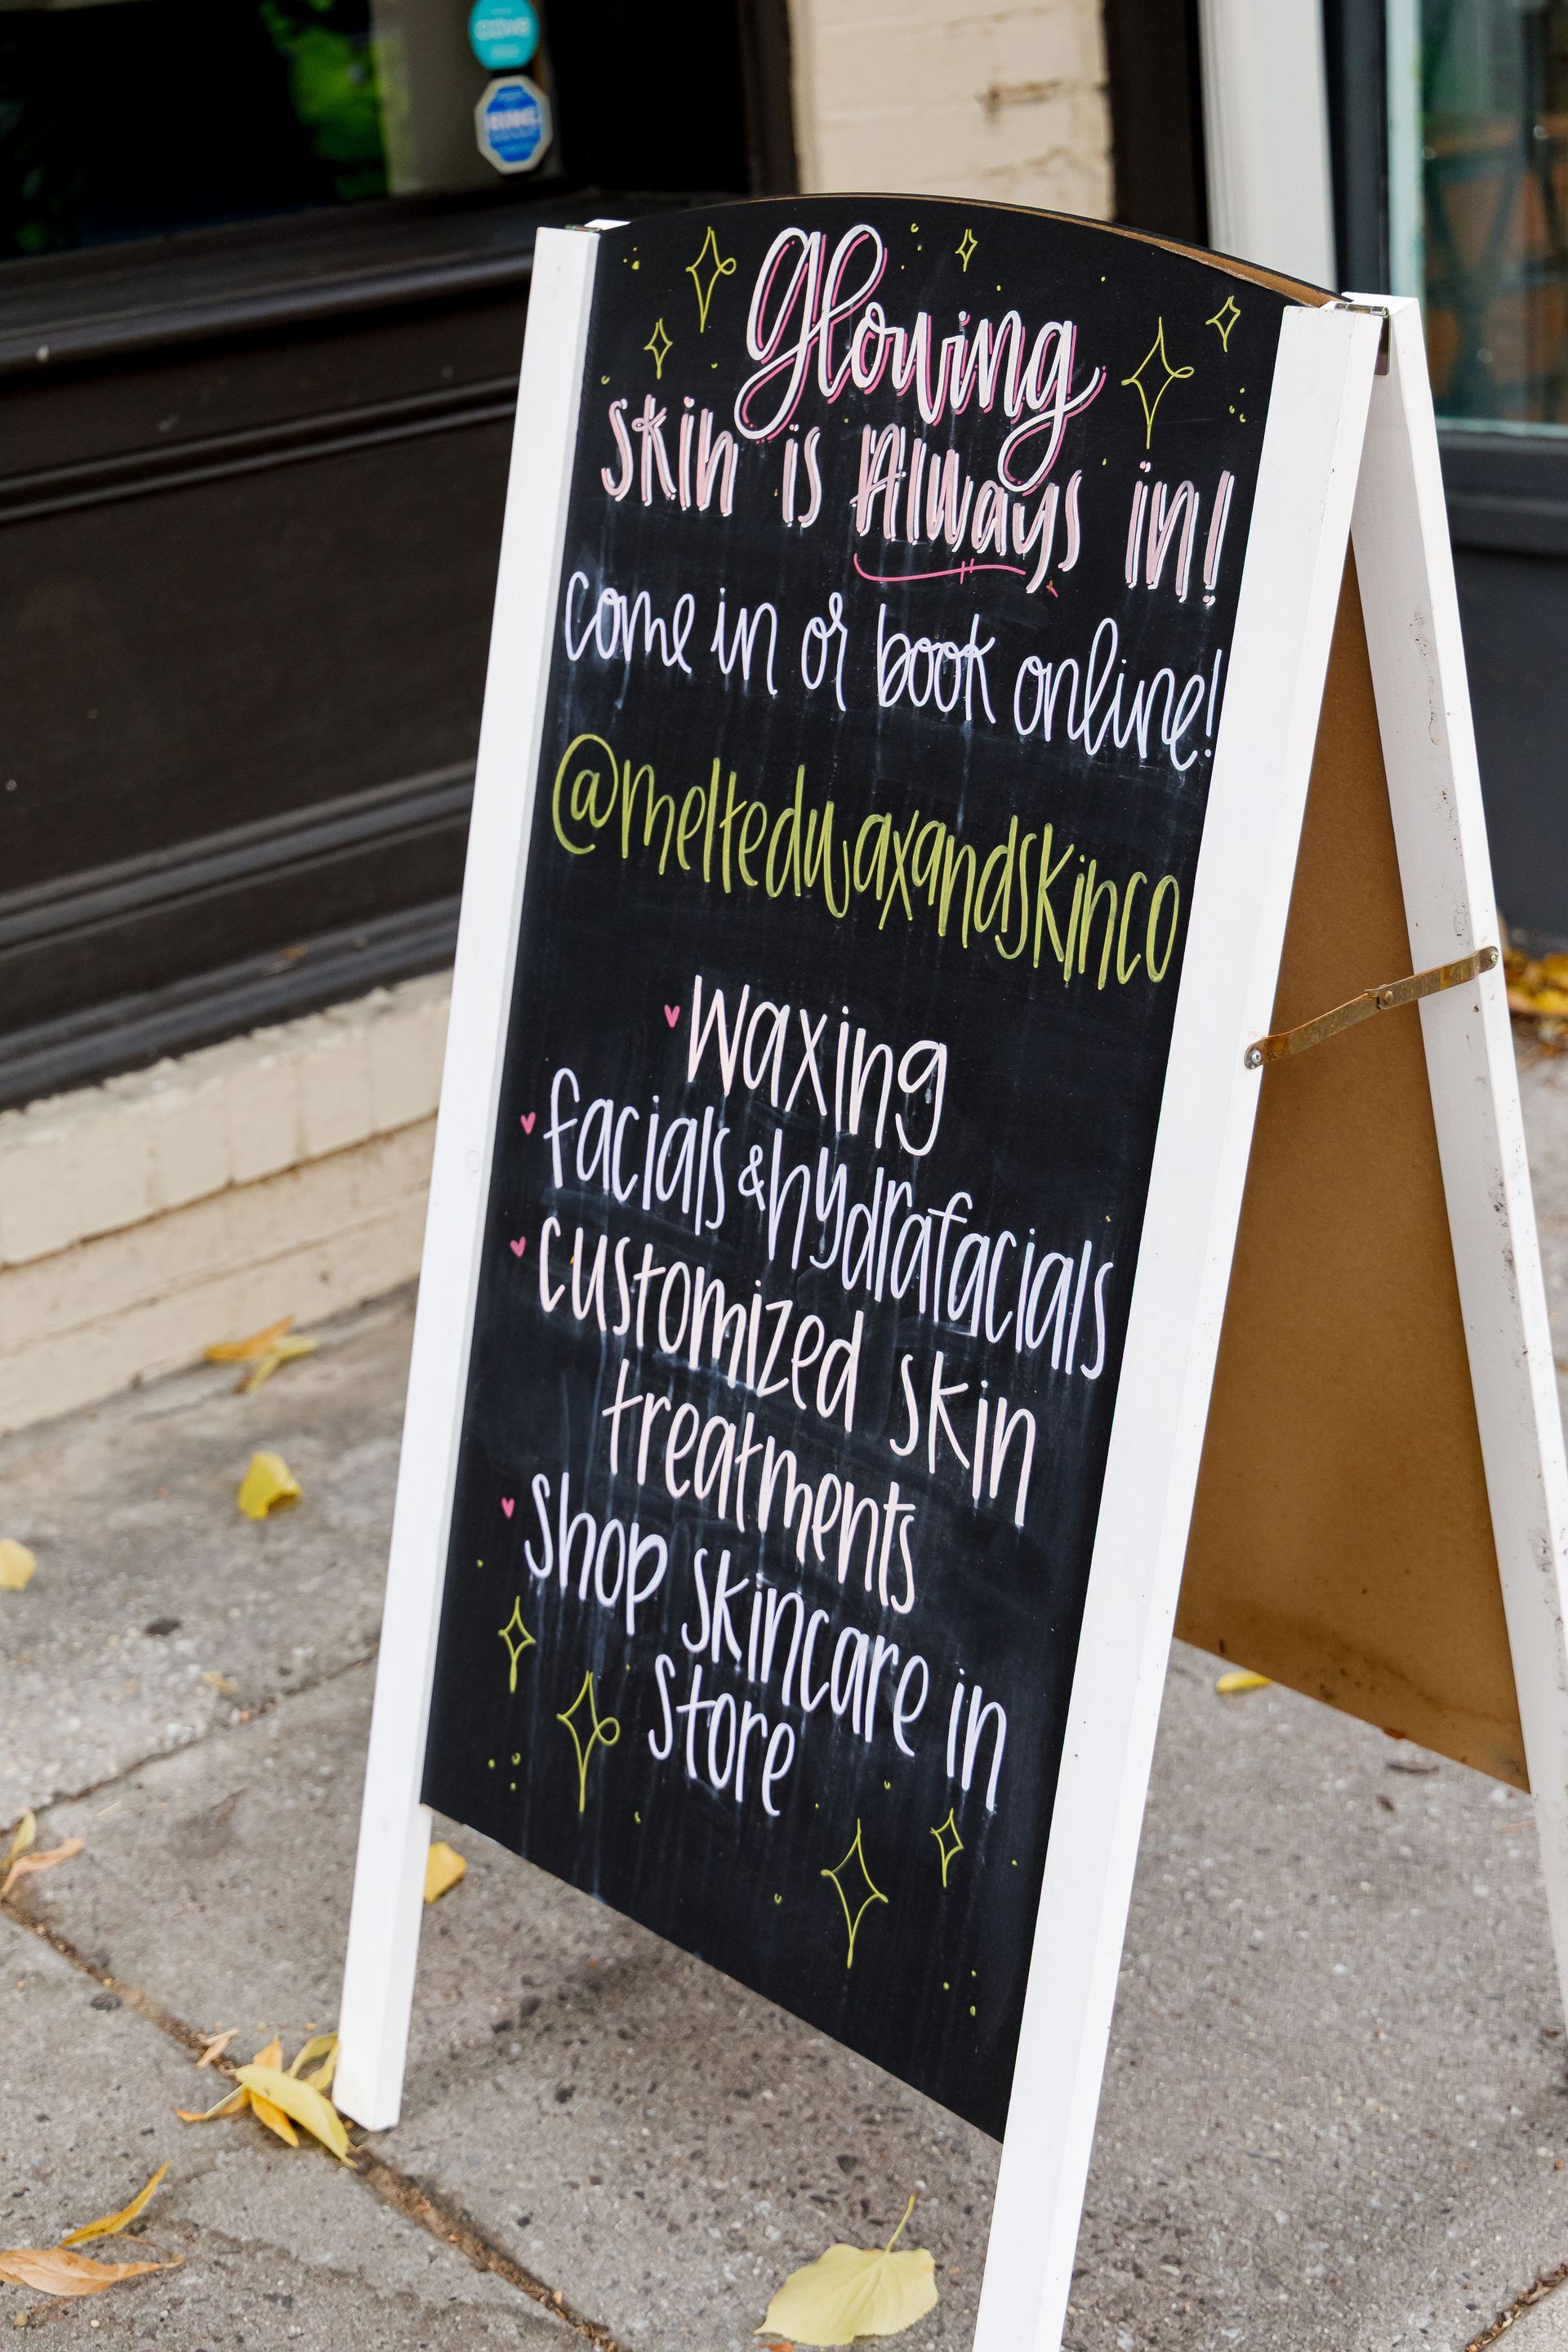 RING
glowing
skin is Always in!
come in or book online!
@meltedwaxandskinco
waxing
facials & hydrafacials
customized skin
treatments
Shop skincare in
store